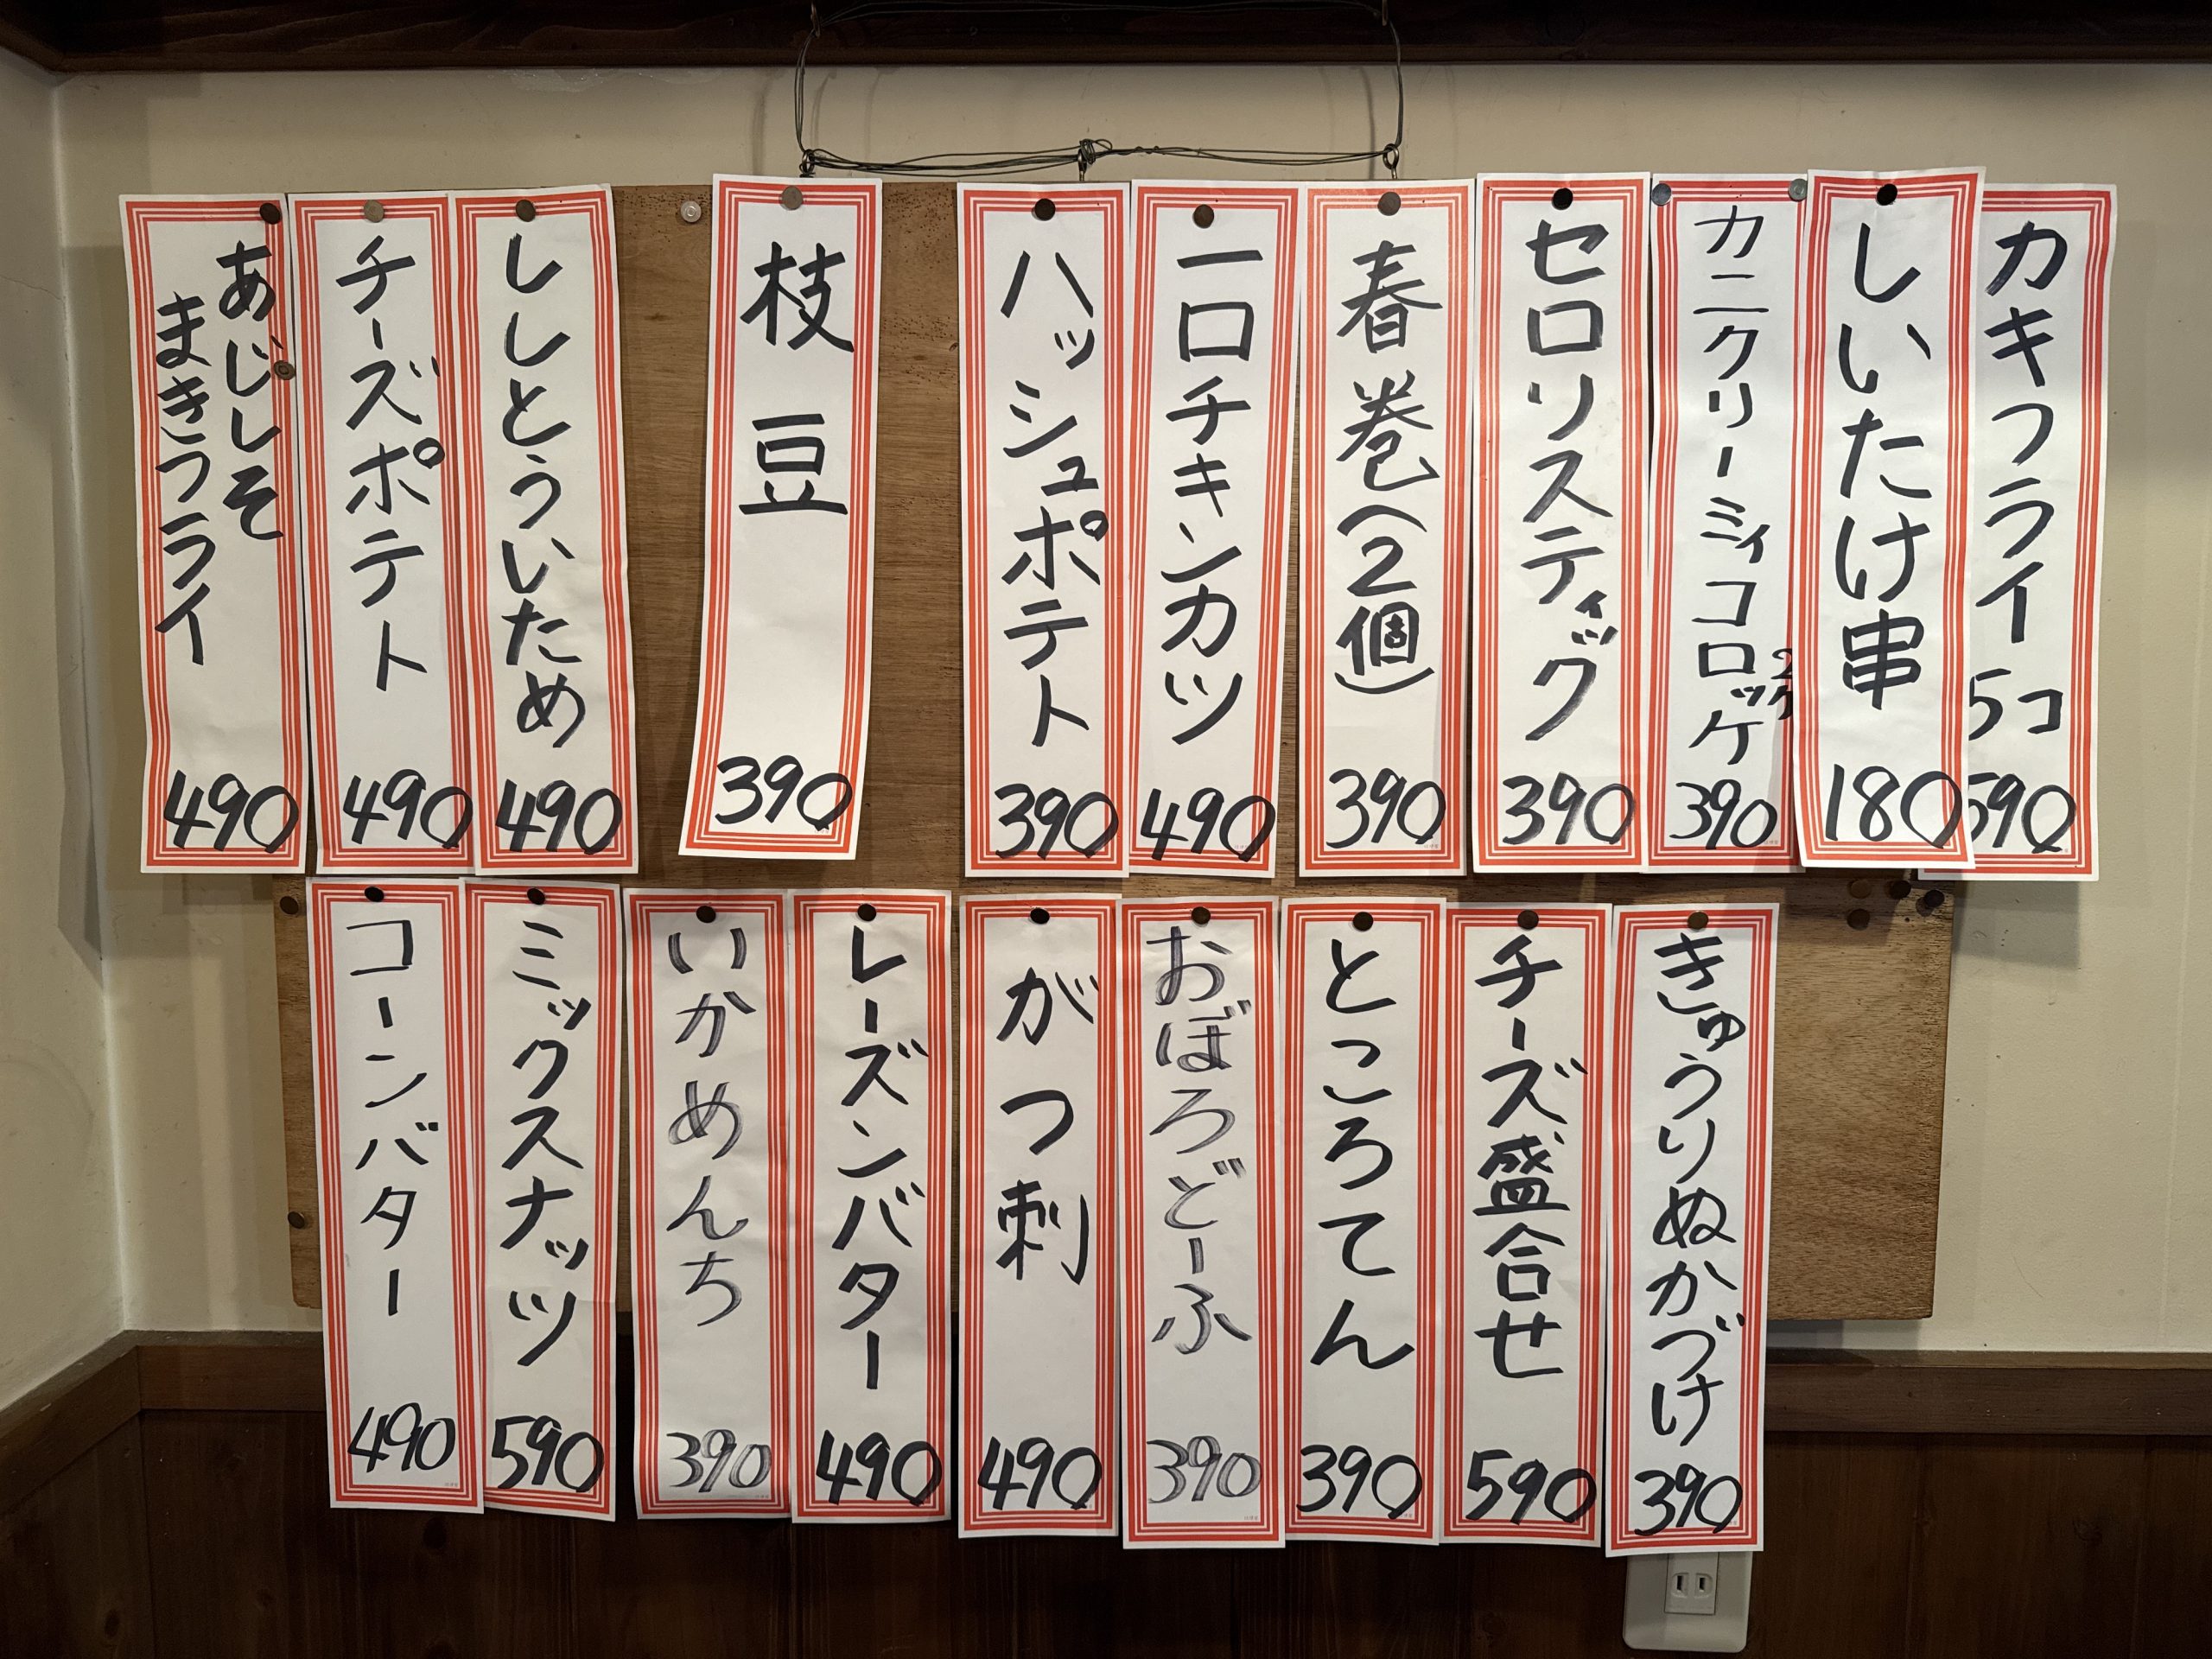 カキフライ 5コ 590
しいたけ串 180
カニクリーミィコロッケ 2ケ 390
セロリスティック 390
春巻(2個) 390
一口チキンカツ 490
ハッシュポテト 390
枝豆 390
ししとういため 490
チーズポテト 490
あじしそ
まきフライ 490
きゅうりぬかづけ 390
チーズ盛合せ 590
ところてん 390
おぼろどーふ 390
がつ刺 490
レーズンバター 490
いかめんち 390
ミックスナッツ 590
コーンバター 490